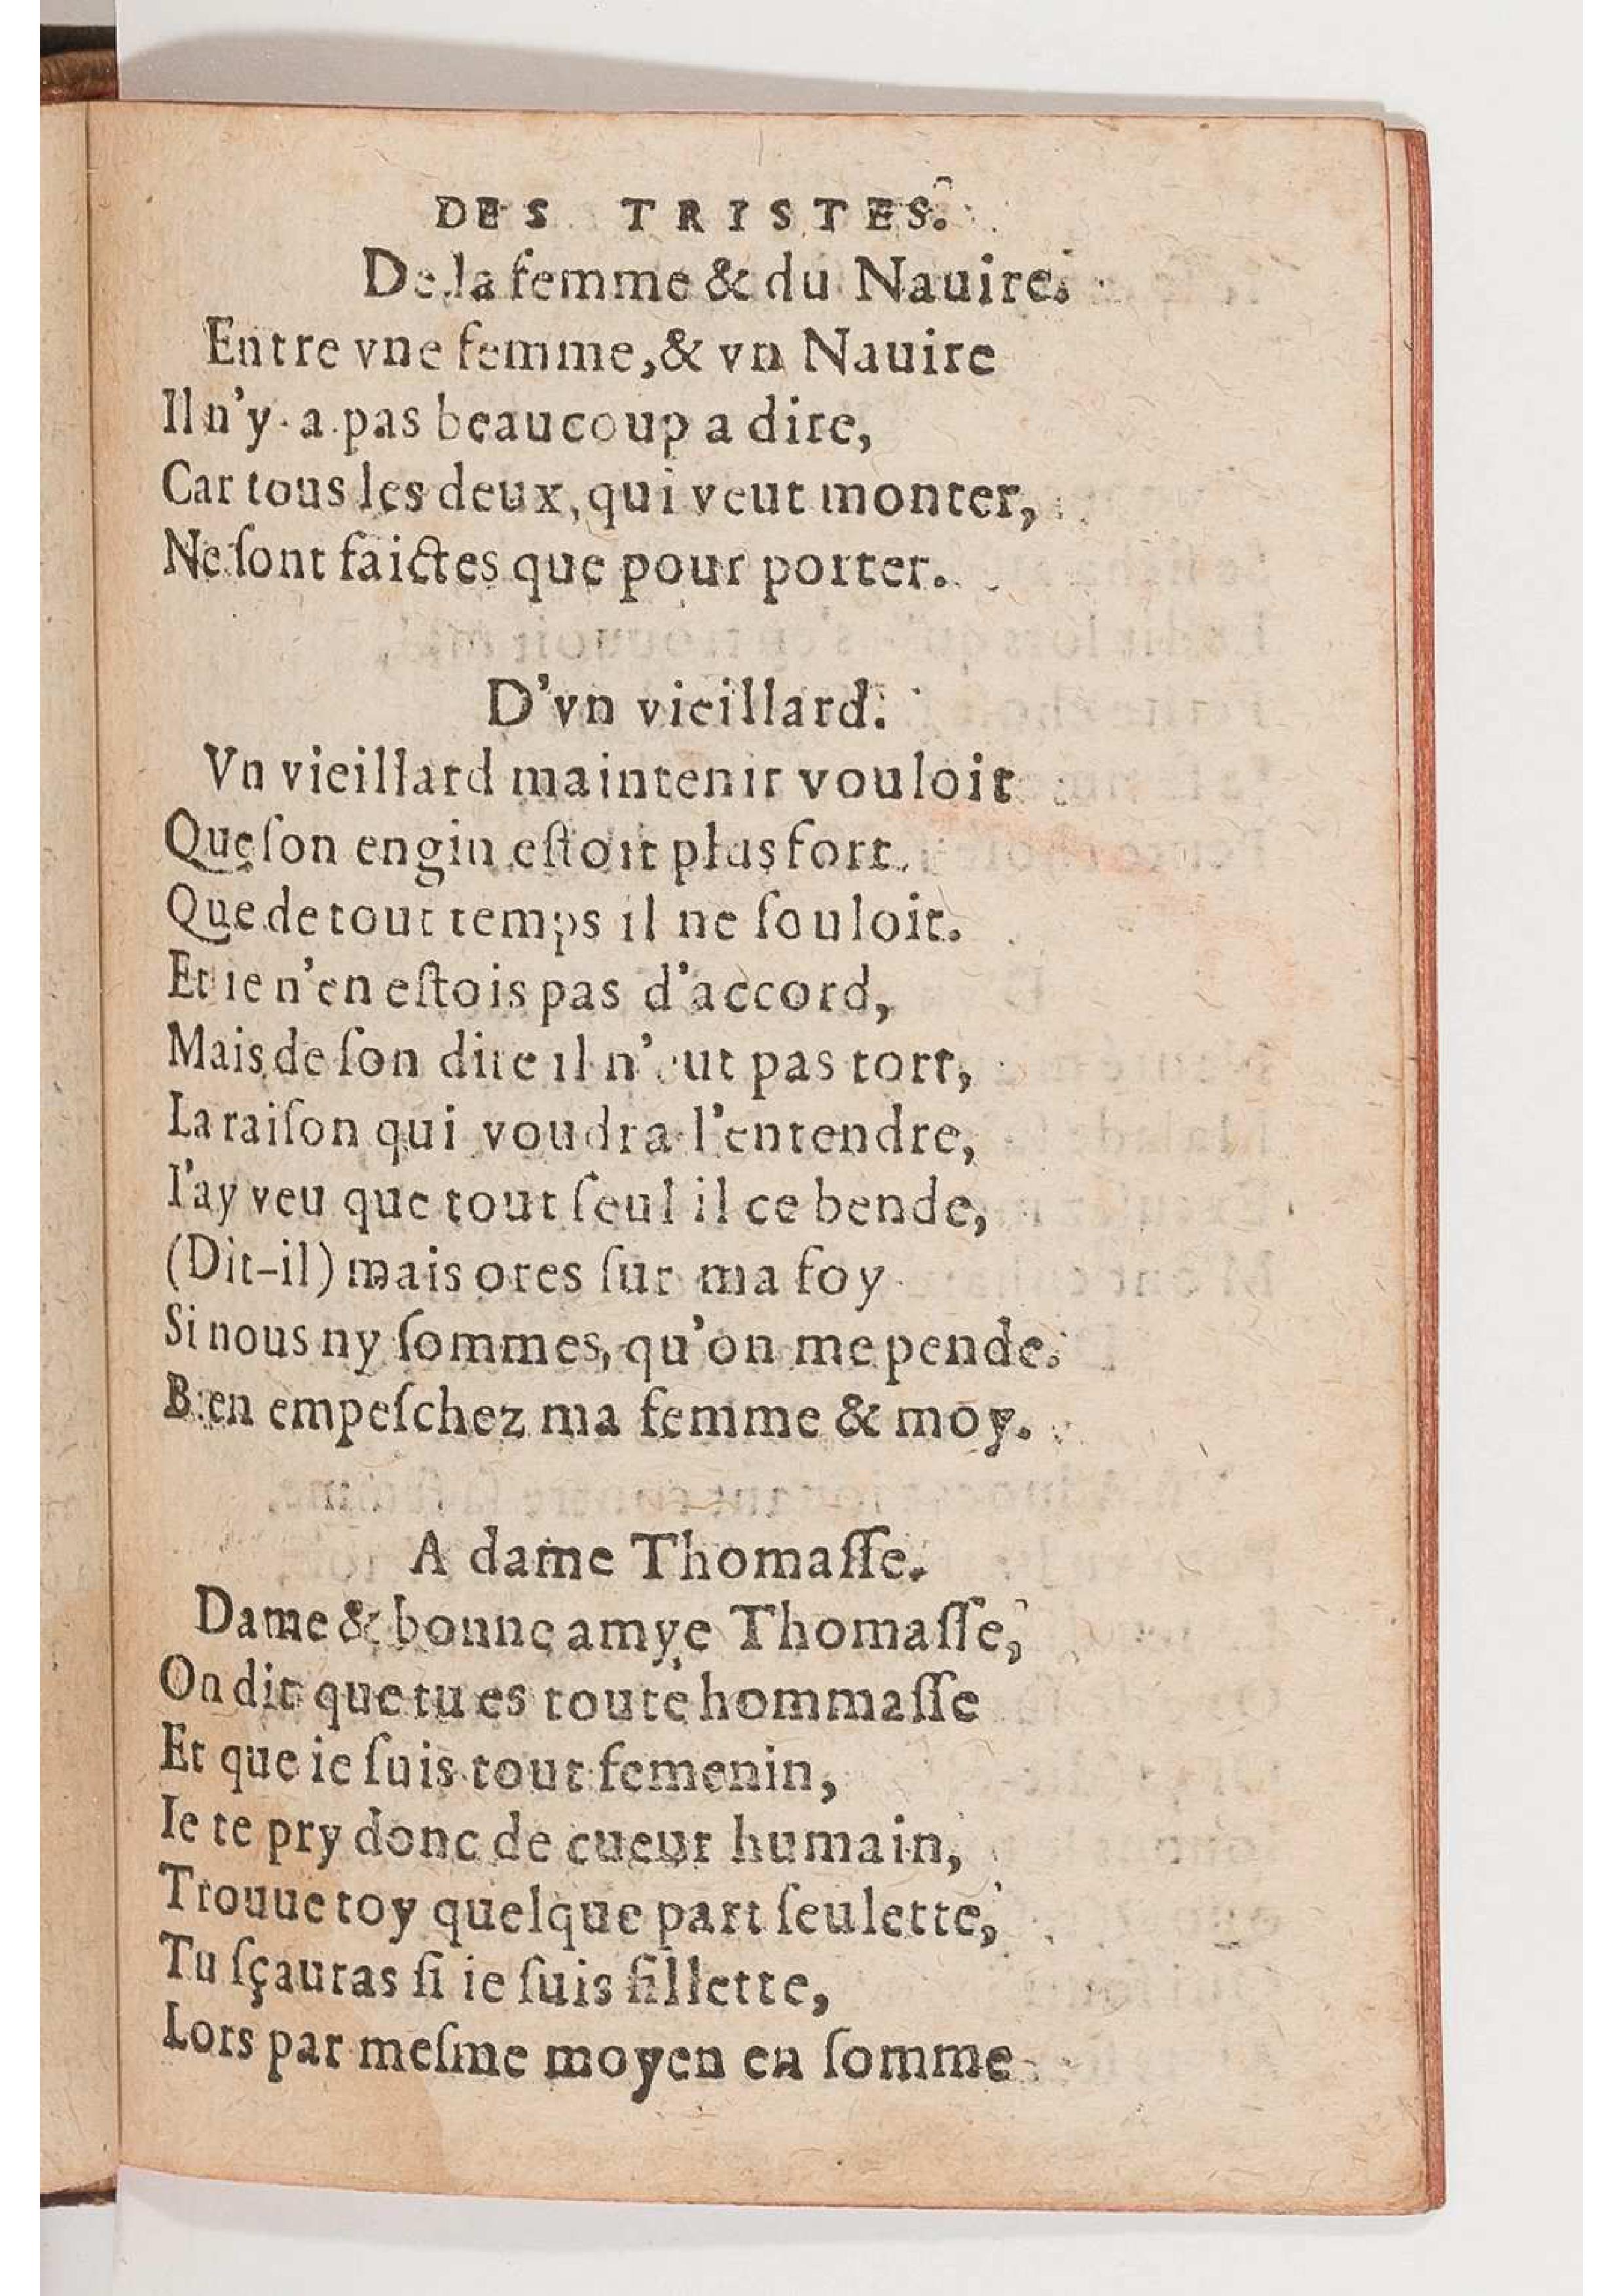 DES TRISTES.
De la femme & du Nauire.
Entre vne femme, & vn Nauire
Il n'y a pas beaucoup a dire,
Car tous les deux, qui veut monter,
Ne ſont faictes que pour porter.
D'vn vieillard.
Vn vieillard maintenir vouloit
Que ſon engin eſtoit plus fort
Que de tout temps il ne ſouloit.
Et ie n'en eſtois pas d'accord,
Mais de ſon dire il n'eut pas tort,
La raiſon qui voudra l'entendre,
I'ay veu que tout ſeul il ce bende,
(Dit-il) mais ores ſur ma foy
Si nous ny ſommes, qu'on me pende.
Bien empeſchez ma femme & moy.
A dame Thomaſſe.
Dame & bonne amye Thomaſſe,
On dit que tu es toute hommaſſe
Et que ie ſuis tout femenin,
Ie te pry donc de cueur humain,
Trouue toy quelque part ſeulette,
Tu ſçauras ſi ie ſuis fillette,
Lors par meſme moyen en ſomme